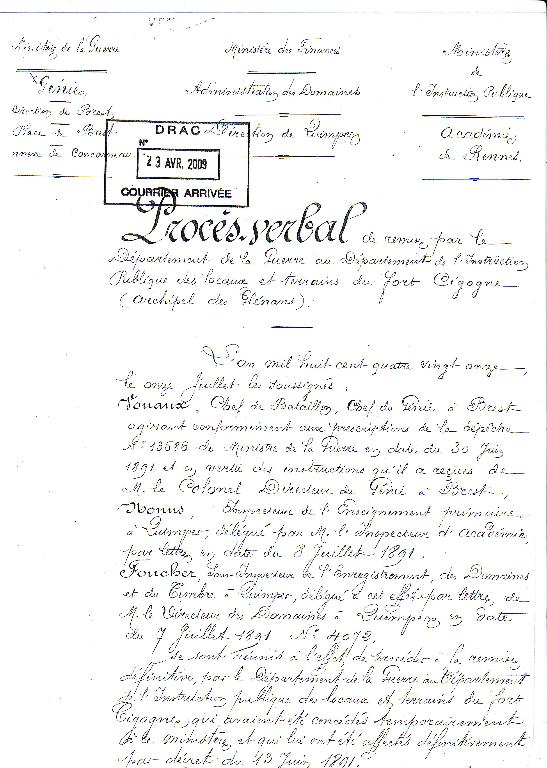 Ministère de la Guerre
Ministère des Finances
Ministère
de
l'Instruction Publique
Génie
Direction de Brest
Place de Brest
Annexe de Concarneau
Administration des Domaines
Direction de Quimper
Académie
de Rennes.
DRAC
N°
23 AVR. 2009
COURRIER ARRIVÉE
Procès-verbal de remise par le
Département de la Guerre au Département de l'Instruction
Publique des locaux et terrains du fort Cigogne
(archipel des Glénans).
L'an mil huit cent quatre vingt onze,
le onze Juillet les soussignés,
Vouaux, Chef de Bataillon, Chef du Génie à Brest
agissant conformément aux prescriptions de la dépêche
N° 13686 du Ministre de la Guerre en date du 30 Juin
1891 et en vertu des instructions qu'il a reçues de
M. le Colonel Directeur du Génie à Brest,
Nonus, Inspecteur de l'Enseignement primaire
à Quimper, délégué par M. l'Inspecteur d'académie
par lettre en date du 8 Juillet 1891.
Foucher, Sous-Inspecteur de l'Enregistrement, des Domaines
et du Timbre à Quimper, délégué à cet effet par lettre de
M. le Directeur des Domaines à Quimper en date
du 7 Juillet 1891 N° 4072,
se sont réunis à l'effet de procéder à la remise
définitive, par le Département de la Guerre au Département
de l'Instruction publique des locaux et terrains du fort
Cigogne, qui avaient été concédés temporairement
à ce ministère et qui lui ont été affectés définitivement
par décret du 13 Juin 1891.